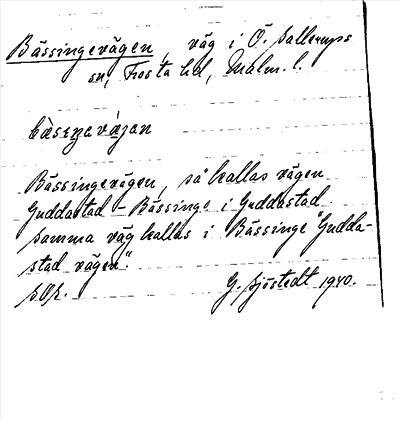 Bässingevägen, väg i Ö. Sallerups
sn, Frosta hd, Malm. l.
bàseŋevä́gan
Bässingevägen, så kallas vägen
Guddastad - Bässinge i Guddastad
samma väg kallas i Bässinge "Gudda-
stad vägen".
G. Sjöstedt 1940.